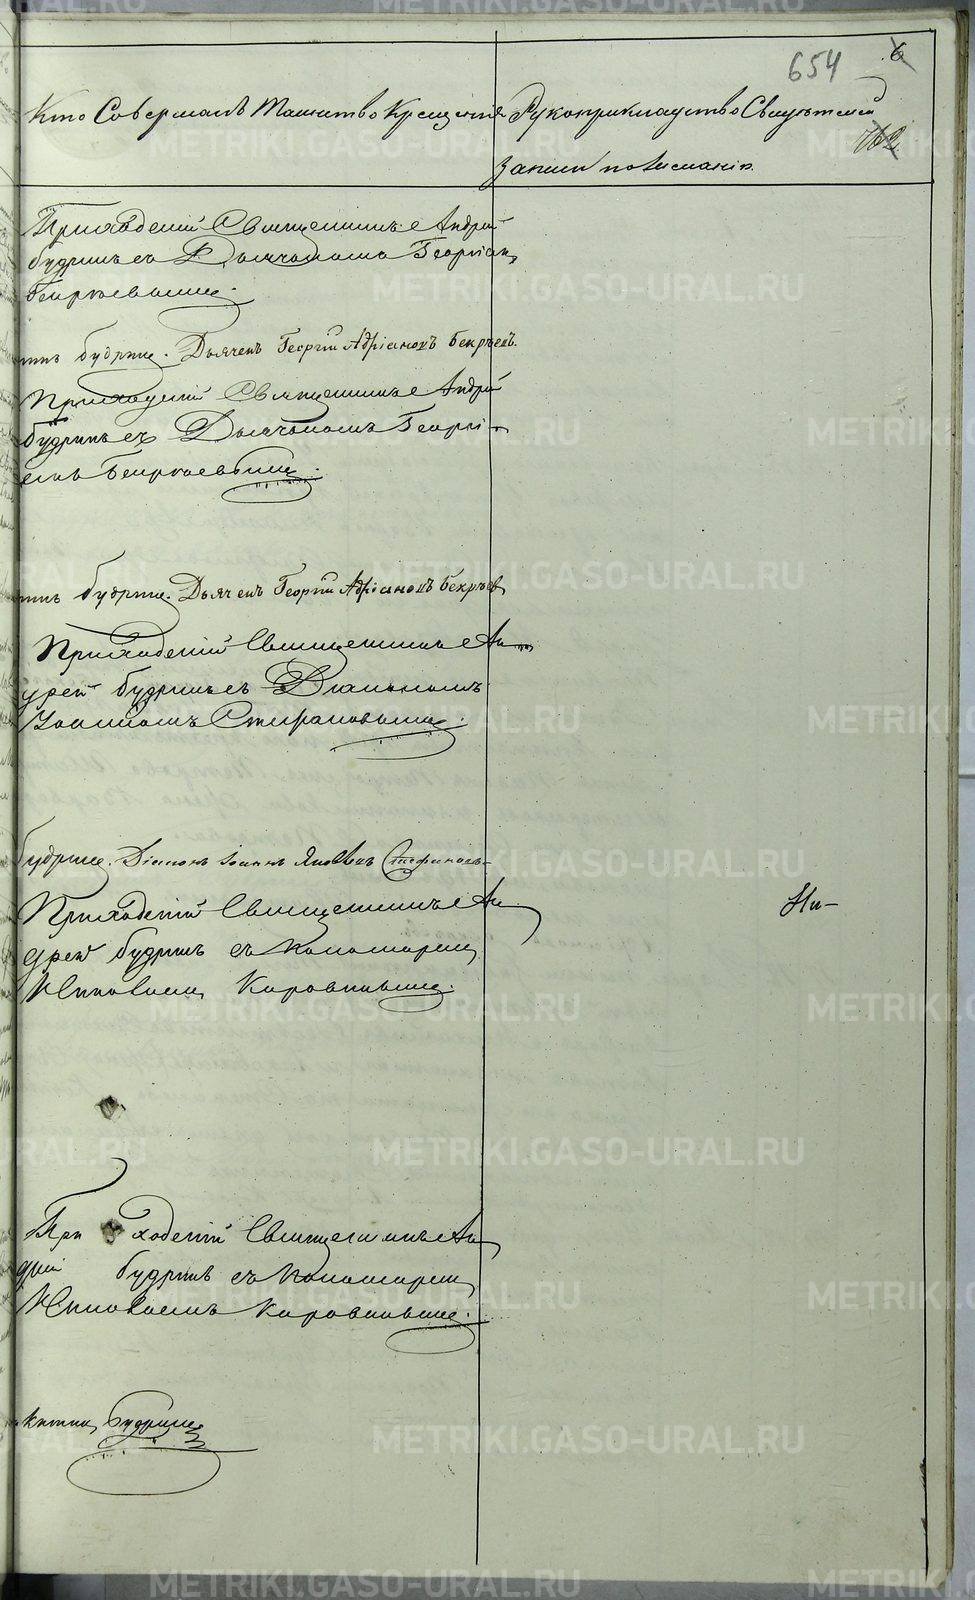 654 6
Кто Совершалъ Таинство Крещенія
Рукоприкладство Свидѣтелей
762
записи по желанію.
Приходскій Священникъ Андрей
Будринъ съ Дьячкомъ Георгіем
Бекрѣевымъ.
Будринъ. Дьячекъ Георгій Адріановъ Бекрѣевъ.
Приходскій Священникъ Андрей
Будринъ съ Дьячкомъ Георгі-
емъ Бекрѣевымъ.
Будринъ. Дьячекъ Георгій Адріановъ Бекрѣевъ
Приходскій Священникъ Ан-
дрей Будринъ съ Діакономъ
Іоанномъ Стефановымъ.
Будринъ. Діаконъ Іоаннъ Яковлевъ Стефановъ
Приходскій Священникъ Ан-
Ни-
дрей Будринъ съ Пономаремъ
Коровинымъ.
Приходскій Священникъ Ан-
дрей Будринъ съ Пономаремъ
Коровинымъ.
Будринъ
METRIKI.GASO-URAL.RU